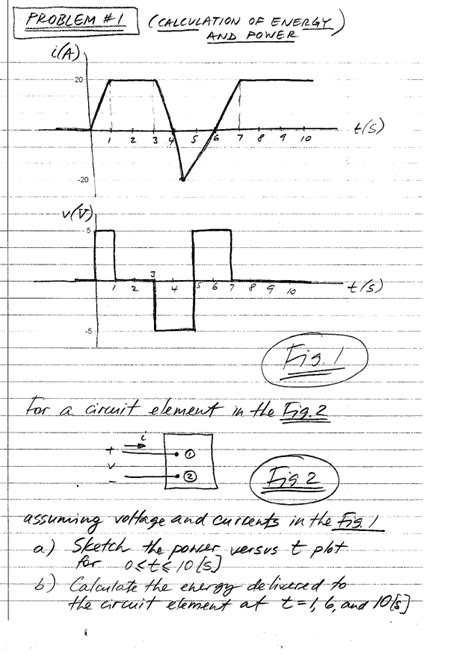 PROBLEM #1 (CALCULATION OF ENERGY
AND POWER)
i(A)
20
1 2 3 4 5 6 7 8 9 10 t(s)
-20
v(V)
5
3
1 2 4 5 6 7 8 9 10 t(s)
-5
Fig. 1
For a circuit element in the Fig. 2
i
+ ①
v
- ②
Fig 2
assuming voltage and currents in the Fig 1
a) Sketch the power versus t plot
for 0≤t≤10[s]
b) Calculate the energy delivered to
the circuit element at t=1, 6, and 10[s]